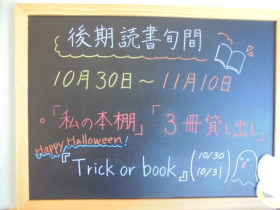 後期読書旬間
10月30日～11月10日
。「私の本棚」「3冊貸し出し」
Happy Halloween!
『Trick or book』(10/30 10/31)